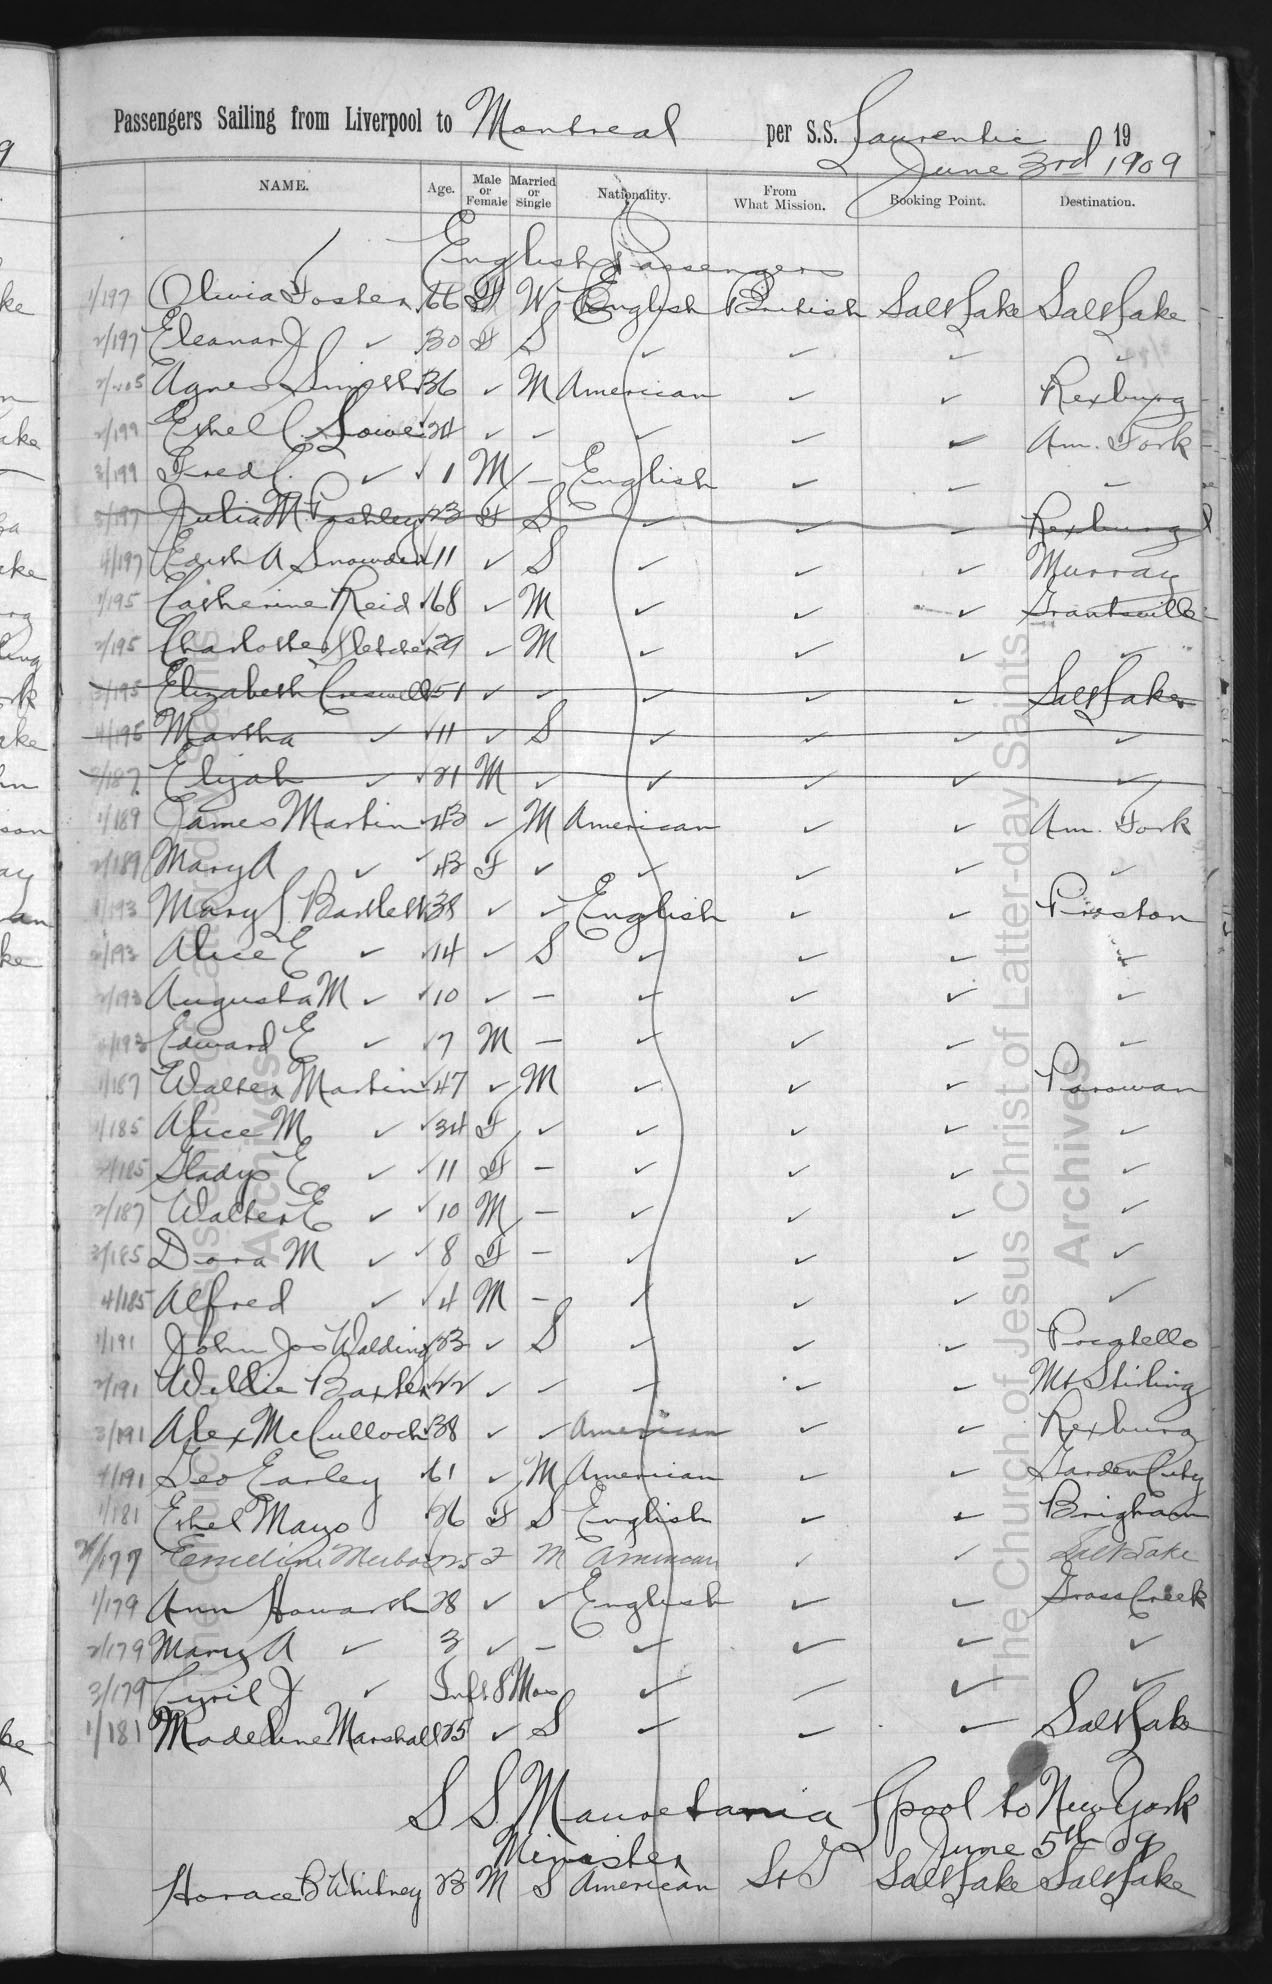 Passengers Sailing from Liverpool to Montreal per S.S. Laurentic 19
June 3rd 1909
NAME. Age. Male or Female Married or Single Nationality. From What Mission. Booking Point. Destination.
English Passengers
1/197 Olivia Foster 66 F W English British Salt Lake Salt Lake
2/197 Eleanor J ✓ 30 F S ✓ ✓ ✓ ✓
Agnes Smith 36 ✓ M American ✓ ✓ Rexburg
2/199 Ethel C Lowe 24 ✓ ✓ ✓ ✓ ✓ Am. Fork
3/199 Fred C. ✓ 1 M – English ✓ ✓ ✓
Julia M Pashley 23 F S ✓ ✓ ✓ Rexburg
4/197 Edith A Snowden 11 ✓ S ✓ ✓ ✓ Murray
1/195 Catherine Reid 68 ✓ M ✓ ✓ ✓ Grantsville
2/195 Charlotte Fletcher 29 ✓ M ✓ ✓ ✓ ✓
3/195 Elizabeth Creswell 51 ✓ ✓ ✓ ✓ ✓ Salt Lake
4/195 Martha ✓ 11 ✓ S ✓ ✓ ✓ ✓
2/187 Elijah ✓ 21 M ✓ ✓ ✓ ✓ ✓
1/189 James Martin 43 ✓ M American ✓ ✓ Am. Fork
2/189 Mary A ✓ 43 F ✓ ✓ ✓ ✓ ✓
1/193 Mary L Bartlett 38 ✓ ✓ English ✓ ✓ Preston
Alice E ✓ 14 ✓ S ✓ ✓ ✓ ✓
2/193 Augusta M ✓ 10 ✓ – ✓ ✓ ✓ ✓
Edward E ✓ 7 M – ✓ ✓ ✓ ✓
1/187 Walter Martin 47 ✓ M ✓ ✓ ✓ Parowan
1/185 Alice M ✓ 34 F ✓ ✓ ✓ ✓ ✓
2/185 Gladys E ✓ 11 F – ✓ ✓ ✓ ✓
2/187 Walter E ✓ 10 M – ✓ ✓ ✓ ✓
3/185 Dora M ✓ 8 F – ✓ ✓ ✓ ✓
4/185 Alfred ✓ 4 M – ✓ ✓ ✓ ✓
1/191 John Jos Walding 23 ✓ S ✓ ✓ ✓ Pocatello
2/191 Willie Baxter 22 ✓ ✓ ✓ ✓ ✓ Mt Stirling
3/191 Alex McCulloch 38 ✓ ✓ American ✓ ✓ Rexburg
4/191 Geo Earley 61 ✓ M American ✓ ✓ Garden City
1/181 Ethel Mayo 26 F S English ✓ ✓ Brigham
2/177 Emeline 25 F M American ✓ ✓ Salt Lake
1/179 Ann Howarth 28 ✓ ✓ English ✓ ✓ Grass Creek
2/179 Mary A ✓ 3 ✓ – ✓ ✓ ✓ ✓
3/179 Cyril J ✓ Inft 8 Mos ✓ ✓ ✓ ✓
1/181 Madeline Marshall 25 ✓ S ✓ ✓ ✓ Salt Lake
S S Mauretania Lpool to New York
Minister June 5th 09
Horace B Whitney 23 M S American Salt Lake Salt Lake
The Church of Jesus Christ of Latter-day Saints
Archives